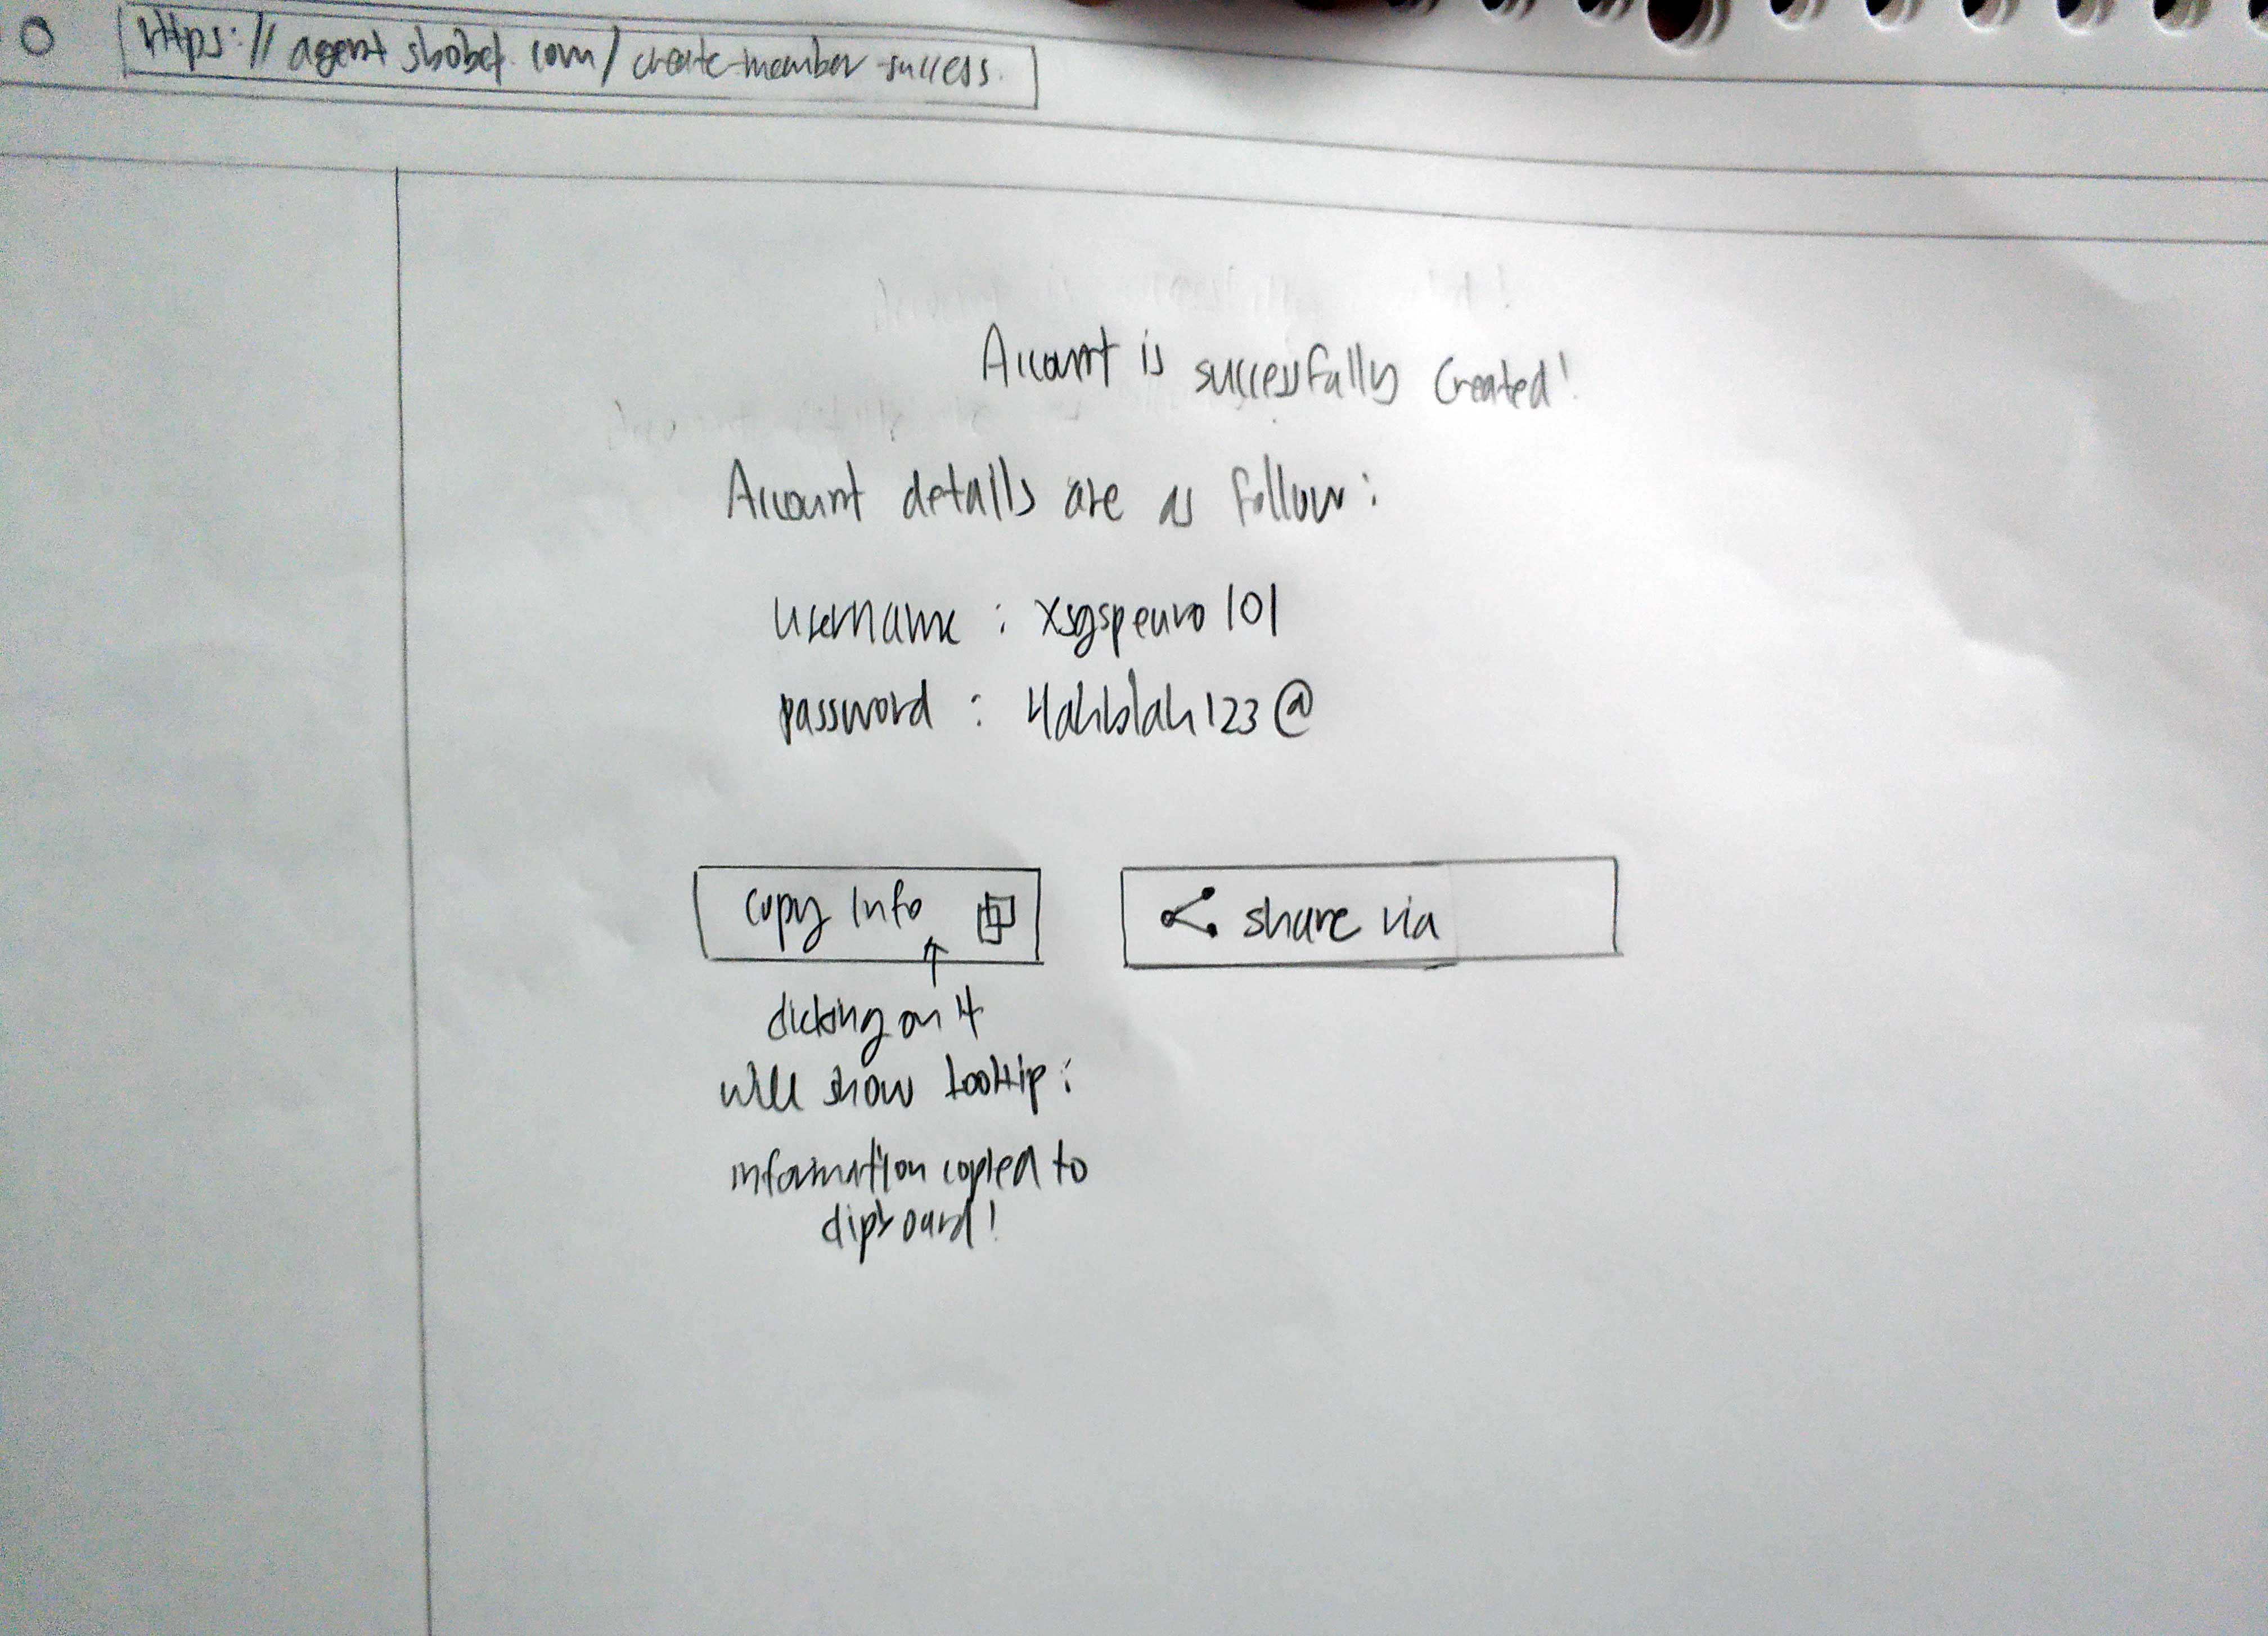 https://agent.sbobet.com/create-member-success
Account is successfully Created!
Account details are as follow:
username : xsgspeuro101
password : 4ahblah123@
copy info
share via
clicking on it
will show tooltip:
information copied to
clipboard!